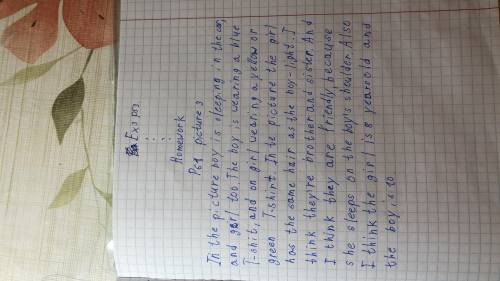 Ex3 p93
Homework
P61 picture 3
In the picture boy is sleeping in the car,
and girl too. The boy is wearing a blue
T-shit, and on girl wearing a yellow or
green T-shirt. In te picture the girl
has the same hair as the boy-light. I
think they're brother and sister. And
I think they are friendly, because
she sleeps on the boy's shoulder. Also
I think the girl is 8 years old and
the boy is 10